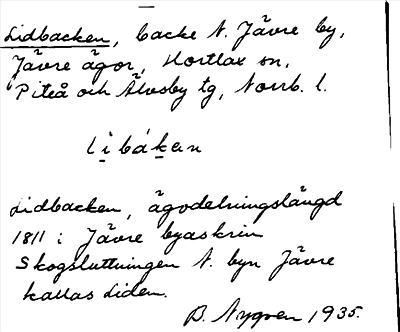 Lidbacken, backe N. Jävre by,
Jävre ägor, Hortlax sn,
Piteå och Älvsby tg, Norrb. l.
libáken
Lidbacken, ägodelningslängd
1811 i Jävre byaskrin
Skogsluttningen N. byn Jävre
kallas Liden.
B. Nygren 1935.